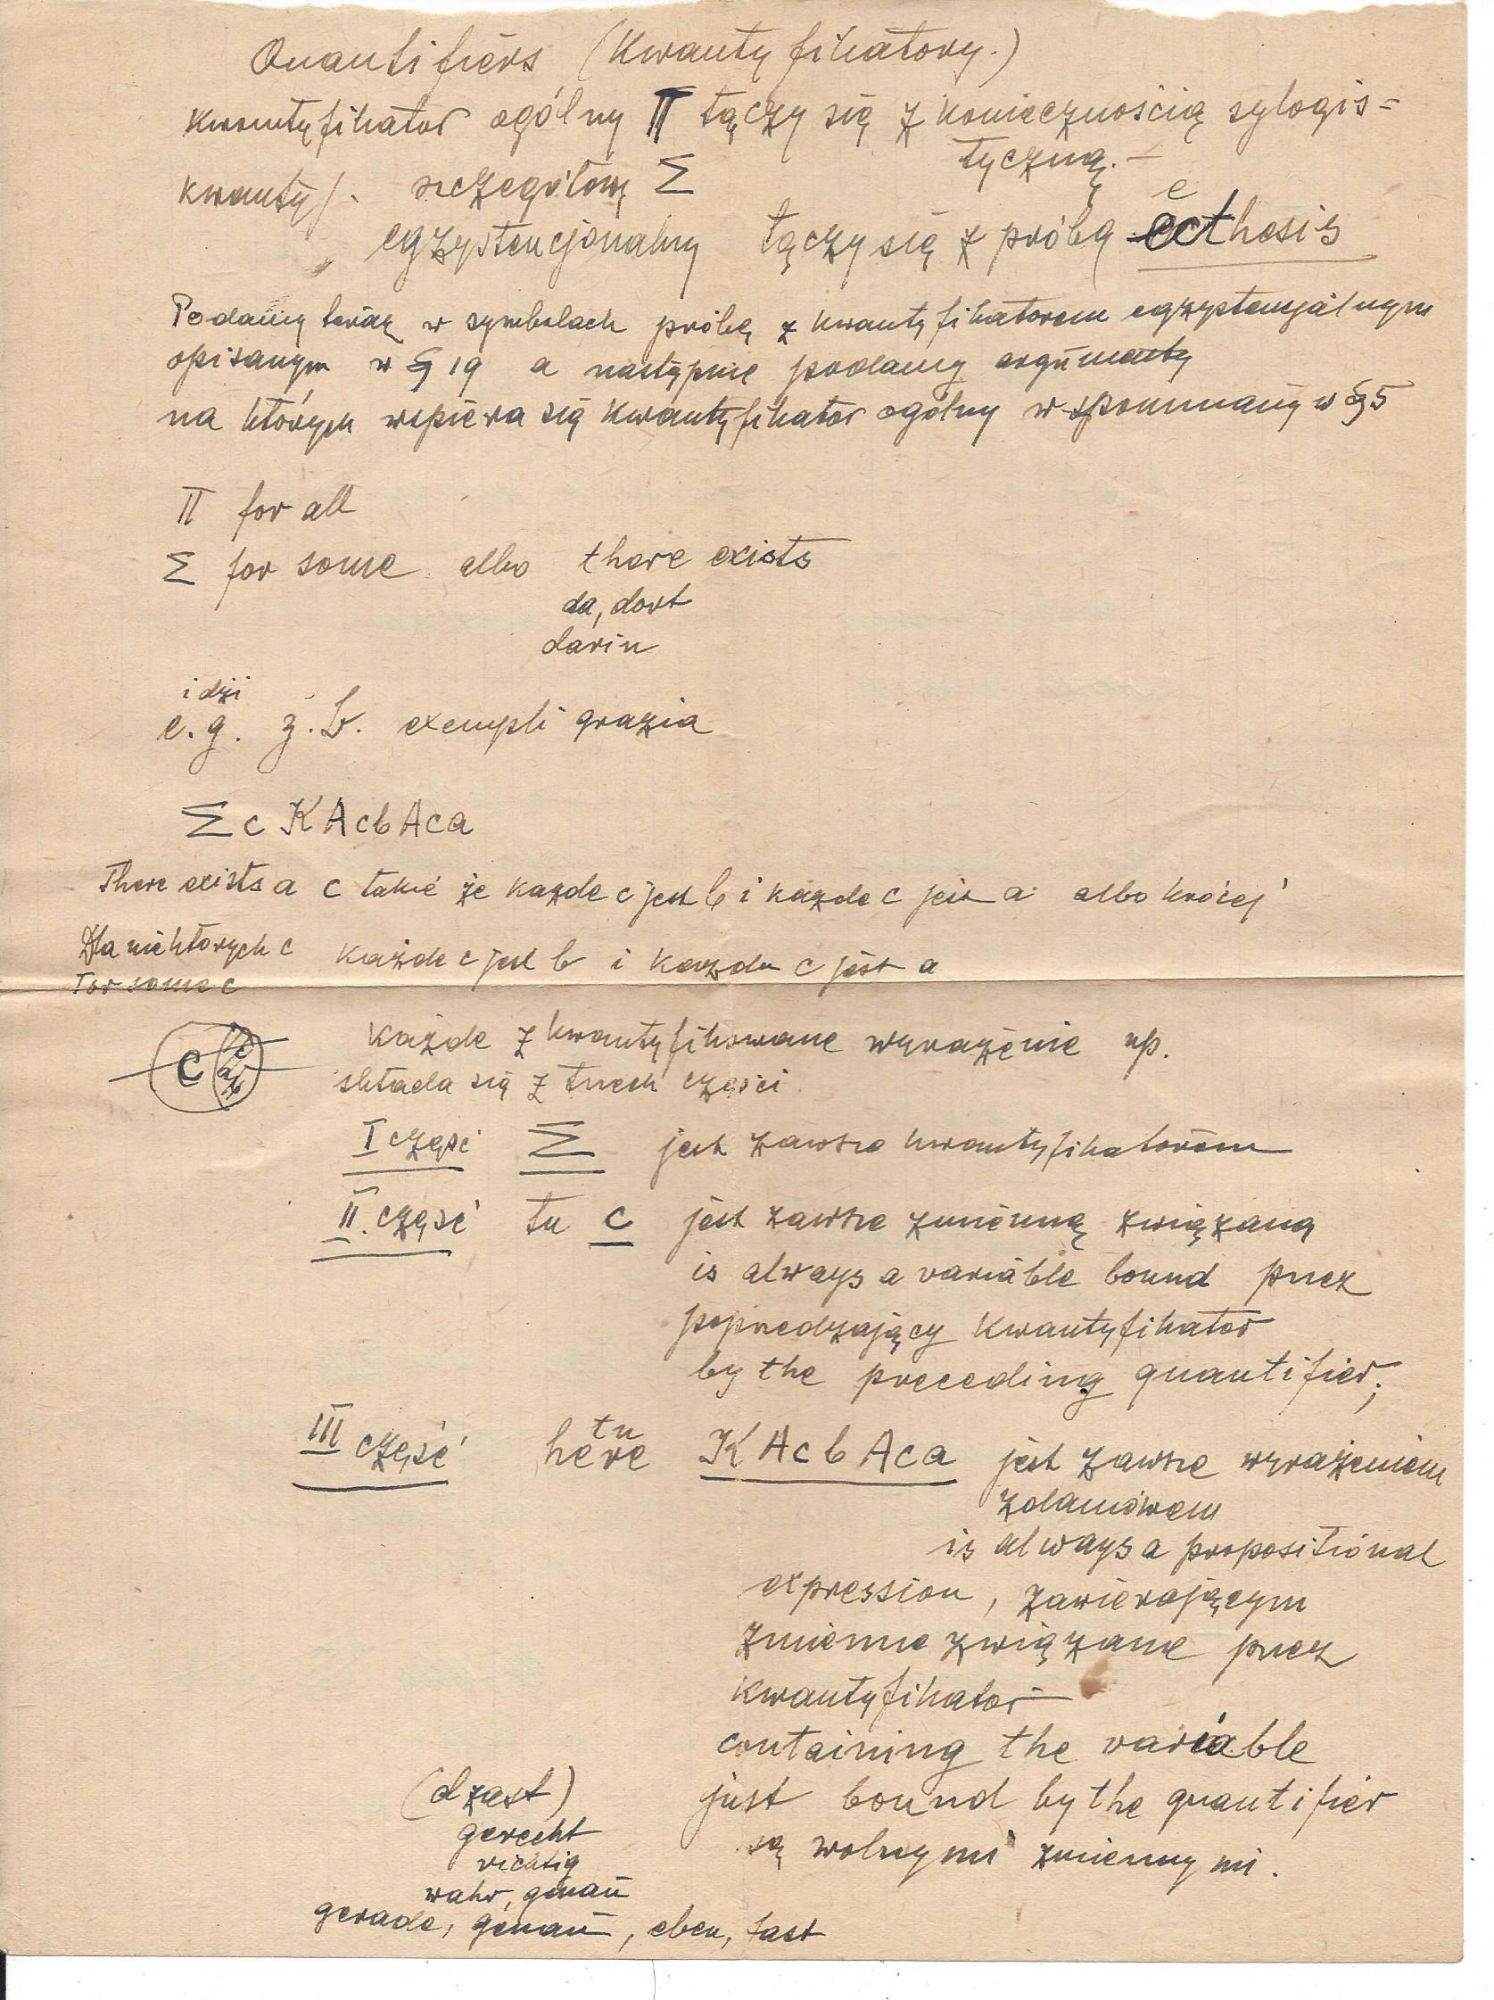 Quantifiers (Kwantyfikatory.)
Kwantyfikator ogólny Π łączy się z koniecznością sylogis=
tyczną. —
Kwantyf. szczegółowy Σ
egzystencjonalny łączy się z próbą ecthesis
e
Podamy teraz w symbolach próbę z kwantyfikatorem egzystencjalnym
opisanym w § 19 a następnie podamy argumenty
na których wspiera się kwantyfikator ogólny wspomniany w § 5
Π for all
Σ for some albo there exists
da, dort
darin
i dżi
e.g. z.B. exempli grazia
Σc KAcbAca
There exists a c takie że każde c jest b i każde c jest a albo krócej
Dla niektórych c każde c jest b i każde c jest a
For some c
C
c
a b
Każde zkwantyfikowane wyrażenie np.
składa się z trzech części
I część Σ jest zawsze kwantyfikatorem
II. część tu c jest zawsze zmienną związaną
is always a variable bound przez
poprzedzający kwantyfikator
by the preceding quantifier;
tu
III część here KAcbAca jest zawsze wyrażeniem
zdaniowem
is always a propositional
expression, zawierającym
zmienne związane przez
kwantyfikator —
containing the variable
(dżast) just bound by the quantifier
gerecht są wolnymi zmiennymi.
richtig
wahr, genau
gerade, genau, eben, fast